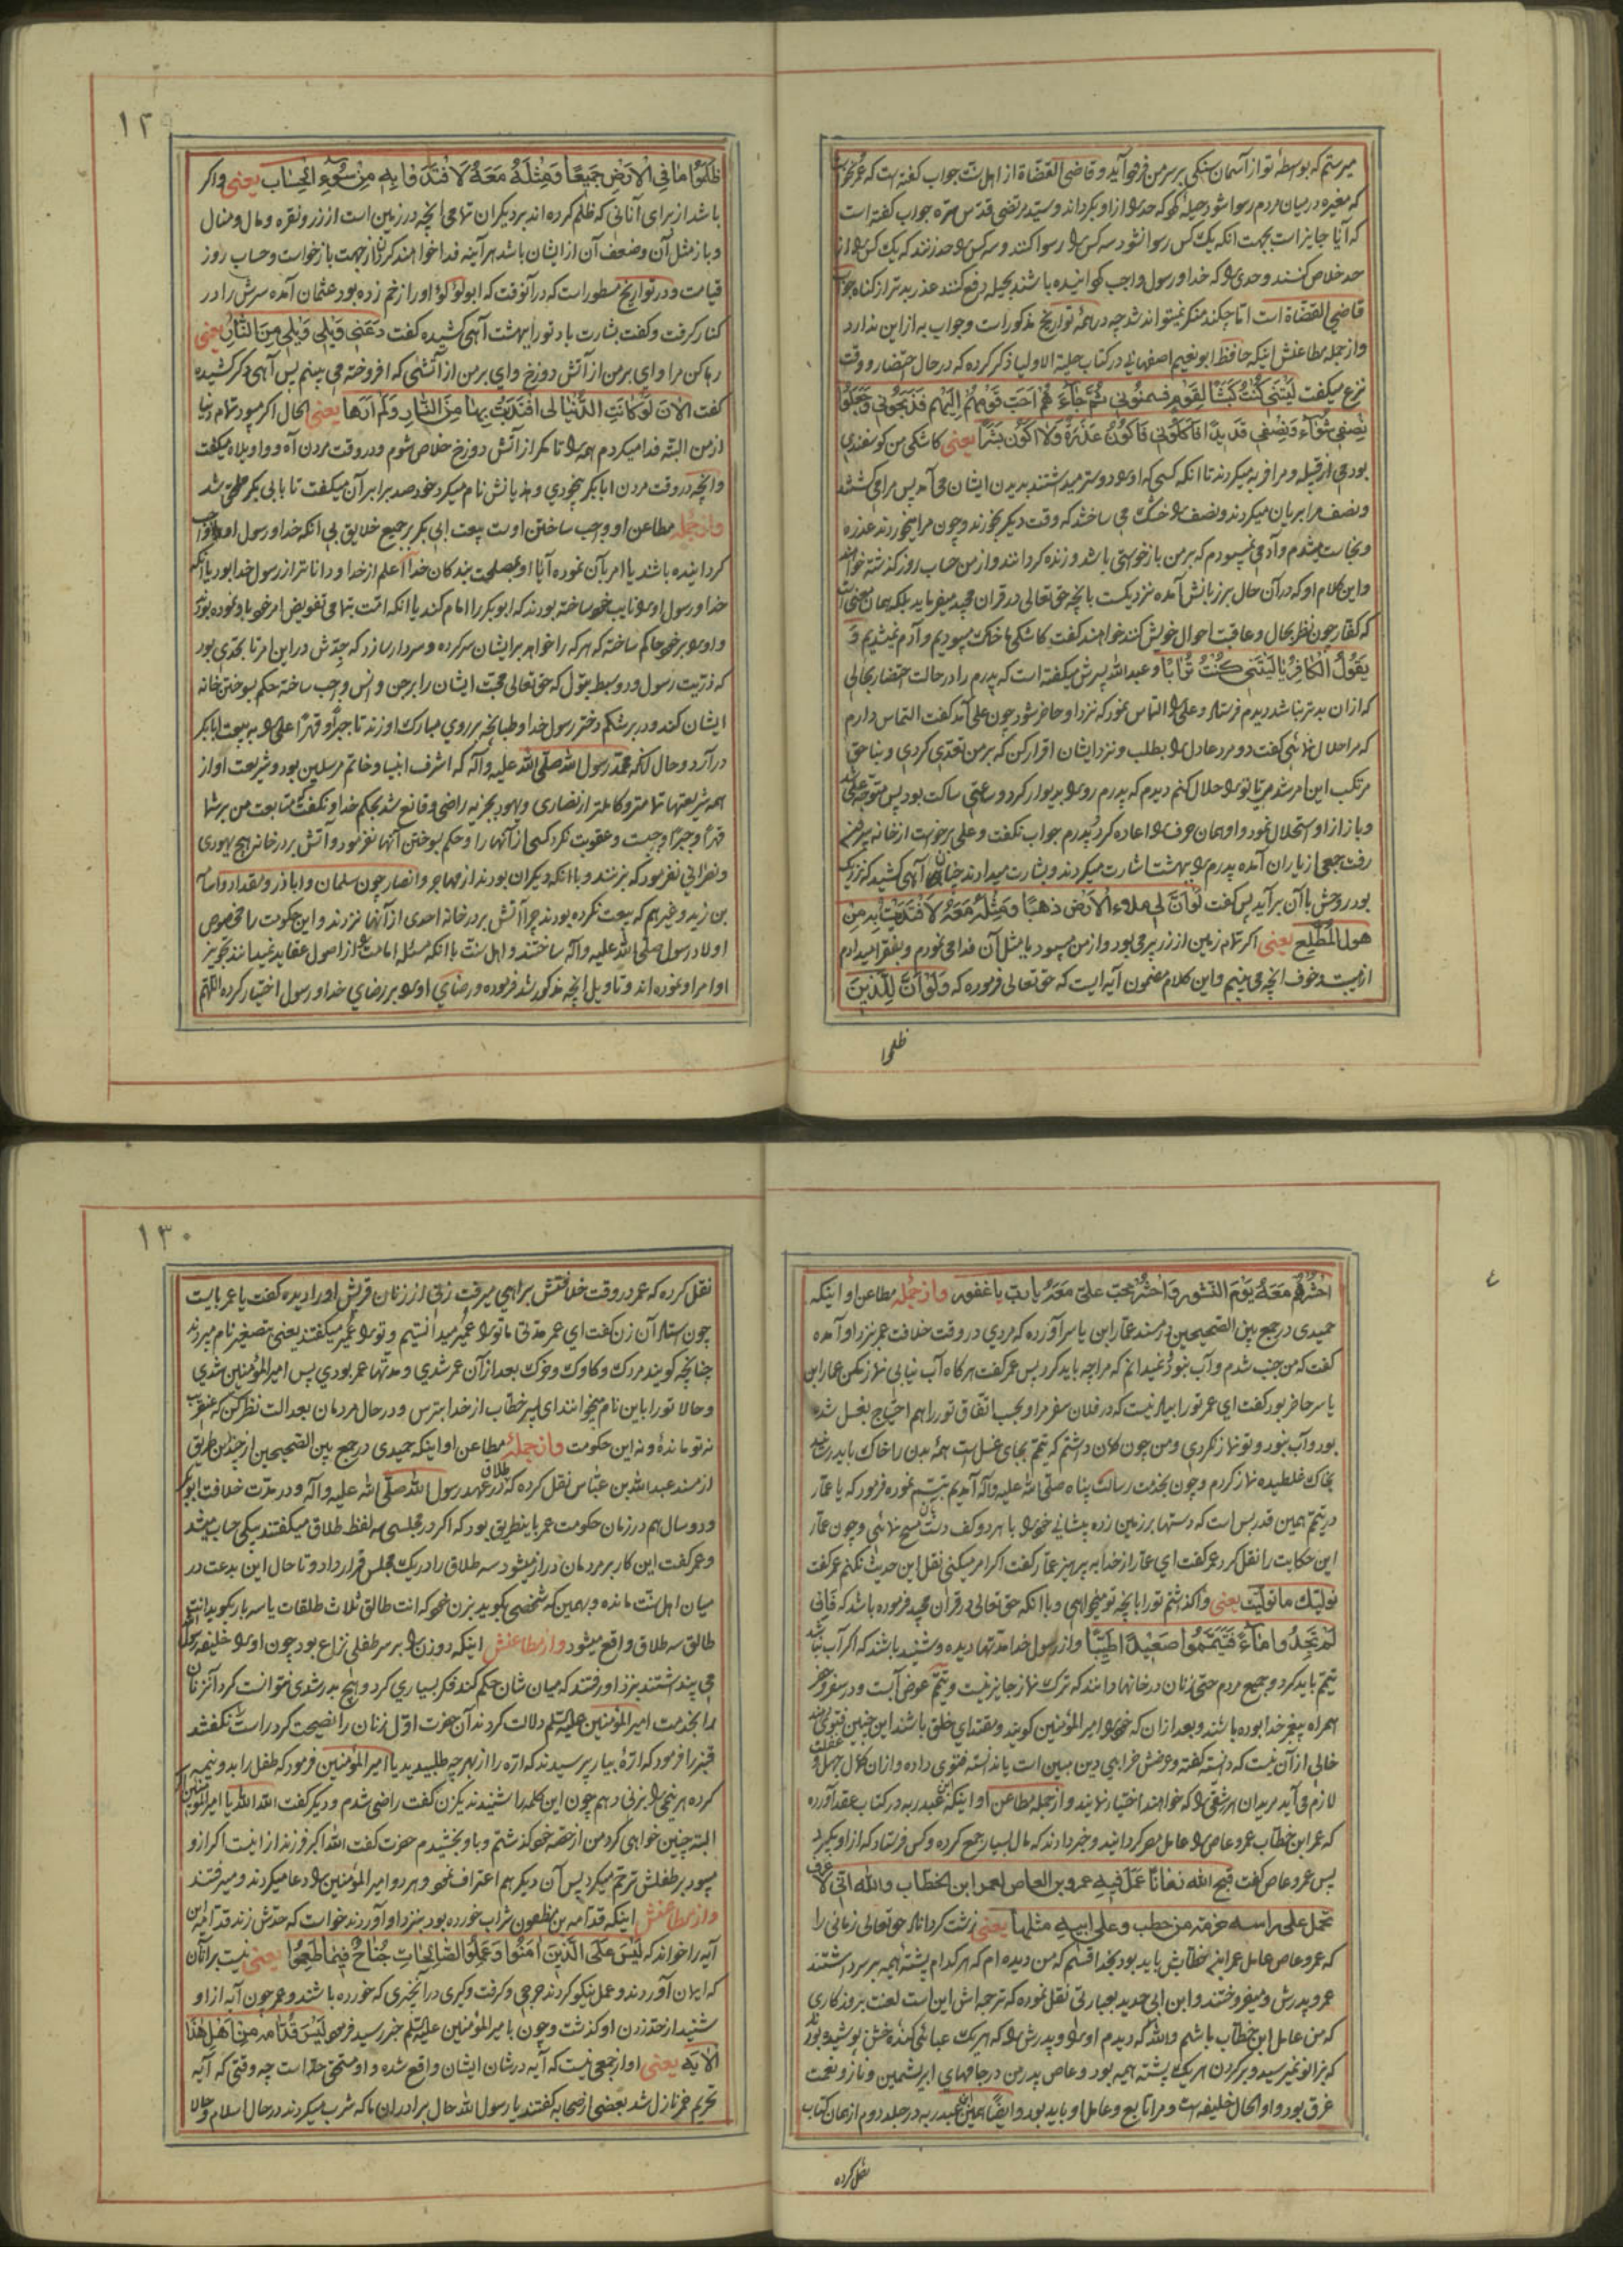 میترسم که بواسطهٔ تو از آسمان سنکی بر سر من فرود آید و قاضی القضاة از اهل سنت جواب کفته است که عمر نخواست
که مغیره در میان مردم رسوا شود حیله کرد که حد را از او بکرداند و سید مرتضی قدس سره جواب کفته است
که آیا جایز است بجهت انکه یک کس رسوا نشود سه کس را رسوا کنند و سه کس را حد زنند که یک کس را از
حد خلاص کنند و حدی را که خدا و رسول واجب کردانیده باشند بحیله دفع کنند عذر بدتر از کناه جواب
قاضی القضاة است اما چکند منکر نمیتواند شد چه در همهٔ تواریخ مذکور است و جواب به از این ندارد
و از جمله مطاعنش اینکه حافظ ابو نعیم اصفهانی در کتاب حلیة الاولیا ذکر کرده که در حال احتضار و وقت
نزع میکفت لیتنی کنت کبشا لقوم فسمنونی ثم جاءهم احب قومهم الیهم فذبحونی فجعلوا
نصفی شواء و نصفی قدیدا فاکلونی فاکون عذرة ولا اکون بشرا یعنی کاشکی من کوسفندی
بودمی از قبیله و مرا فربه میکردند تا انکه کسی که او را دوستر میداشتند بدیدن ایشان می آمد پس مرا میکشتند
و نصف مرا بریان میکردند و نصف را خشک می ساختند که وقت دیکر بخورند و چون مرا میخوردند عذره
و نجاست میشدم و آدمی نمیبودم که بر من بازخواستی باشد و زنده کردانند و از من حساب روز کذشته خواهند
و این کلام او که در آن حال بر زبانش آمده نزدیکست بانچه حق تعالی در قران مجید میفرماید بلکه همان معنی است
که کفار چون نظر بحال و عاقبت احوال خویش کنند خواهند کفت کاشکی ما خاک میبودیم و آدم نمیشدیم و
یقول الکافر یا لیتنی کنت ترابا و عبدالله پسرش میکفته است که پدرم را در حالت احتضار بحالی
که از ان بدتر نباشد دیدم فرستاد و علی را التماس نمود که نزد او حاضر شود چون علی آمد کفت التماس دارم
که مرا حلال نمائی کفت دو مرد عادل را بطلب و نزد ایشان اقرار کن که بر من تعدی کردی و بناحق
مرتکب این امر شدی تا تو را حلال کنم دیدم که پدرم رو را بدیوار کرد و ساعتی ساکت بود پس متوجه علی شد
و باز از او استحلال نمود و او همان حرف را اعاده کرد پدرم جواب نکفت و علی برخواست از خانه بیرون
رفت جمعی از یاران آمده پدرم را ببهشت اشارت میکردند و بشارت میدادند چنان آهی کشید که نزدیک
بود روحش با آن برآید پس کفت لو ان لی ملاء الارض ذهبا و مثله معه لافتدیت به من
هول المطلع یعنی اکر تمام زمین از زر پر می بود و از من میبود یا مثل آن فدا می نمودم و بفقرا میدادم
از هیبت و خوف انچه می بینم و این کلام مضمون آیه ایست که حق تعالی فرموده که ولو ان للذین
ظلموا
١٢٩
ظلموا ما فی الارض جمیعا و مثله معه لافتدوا به من سوء الحساب یعنی و اکر
باشد از برای آنانی که ظلم کرده اند بر دیکران تمامی انچه در زمین است از زر و نقره و مال و منال
و باز مثل آن و ضعف آن از ایشان باشد هر آینه فدا خواهند کرد آنرا از جهت بازخواست و حساب روز
قیامت و در تواریخ مسطور است که در آنوقت که ابولؤلؤ او را زخم زده بود عثمان آمده سرش را در
کنار کرفت و کفت بشارت باد تو را ببهشت آهی کشیده کفت دعنی ویلی ویلی من النار یعنی
رها کن مرا وای بر من از آتش دوزخ وای بر من از آتشی که افروخته می بینم پس آهی دیکر کشیده
کفت الان لو کانت الدنیا لی افتدیت بها من النار ولم ارها یعنی الحال اکر میبود تمام دنیا
از من البته فدا میکردم همه را تا مکر از آتش دوزخ خلاص شوم و در وقت مردن آه و واویلاه میکفت
و انچه در وقت مردن ابابکر بیخودی و هذیانش نام میکرد خود صد برابر آن میکفت تا بابی بکر ملحق شد
و از جمله مطاعن او واجب ساختن اوست بیعت ابی بکر بر جمیع خلایق بی انکه خدا و رسول او واجب
کردانیده باشند یا امر بآن نموده آیا او بمصلحت بندکان خدا اعلم از خدا و دانا تر از رسول خدا بود یا انکه
خدا و رسول او را نایب خود ساخته بودند که ابو بکر را امام کند یا انکه امت بتمامی تفویض امر خود باو نموده بودند
و او را بر خود حاکم ساخته که هر که را خواهد بر ایشان سرکرده و سردار سازد که جدش در این امر تا بحدی بود
که ذریت رسول و در وسط بتول که حق تعالی محبت ایشان را بر جن و انس واجب ساخته حکم بسوختن خانه
ایشان کند و در بر شکم دختر رسول خدا و طبانچه بر روی مبارک او زند تا جبرا و قهرا علی را به بیعت ابابکر
درآرد و حال آنکه محمد رسول الله صلی الله علیه و آله که اشرف انبیا و خاتم مرسلین بود و شریعت او از
همه شریعتها تمامتر و کاملتر از نصاری و یهود بجزیه راضی و قانع شد بحکم خدا و نکفت متابعت من بر شما
قهرا و جبرا واجبست و عقوبت نکرد کسی از آنها را و حکم بسوختن آنها نفرمود و آتش بر در خانه هیچ یهودی
و نصرانی نفرمود که بزنند و با انکه دیکران بودند از مهاجر و انصار چون سلمان و اباذر و مقداد و اسامة
بن زید و غیر هم که بیعت نکرده بودند چرا آتش بر در خانه احدی از آنها نزدند و این حکومت را مخصوص
اولاد رسول صلی الله علیه و آله ساختند و اهل سنت با انکه مسئله امامت را از اصول عقاید نمیدانند تجویز
اوامر او نموده اند و تاویل انچه مذکور شد فرموده و رضای او را بر رضای خدا و رسول اختیار کرده اللهم
احشرهم معه یوم النشور و احشر محب علی معه یا رب یا غفور و از جمله مطاعن او اینکه
حمیدی در جمع بین الصحیحین در مسند عمار ابن یاسر آورده که مردی در وقت خلافت عمر نزد او آمده
کفت که من جنب شدم و آب نبود و نمیدانم که مرا چه باید کرد پس عمر کفت هرکاه آب نیابی نماز مکن عمار ابن
یاسر حاضر بود کفت ای عمر تو را بیاد نیست که در فلان سفر مرا و بحسب اتفاق تو را هم احتیاج بغسل شده
بود و آب نبود و تو نماز نکردی و من چون کمان داشتم که تیمم بجای غسل است همهٔ بدن را خاک باید رساند
بخاک غلطیده نماز کردم و چون بخدمت رسالت پناه صلی الله علیه و آله آمدیم تبسم نموده فرمود که یا عمار
در تیمم همین قدر بس است که دستها بر زمین زده پیشانی خود را با هر دو کف دست مسح نمائی و چون عمار
این حکایت را نقل کرد عمر کفت ای عمار از خدا به پرهیز عمار کفت اکر امر میکنی نقل این حدیث نکنم عمر کفت
نولیک ما تولیت یعنی واکذاشتم تو را بانچه تو میخواهی و با انکه حق تعالی در قران مجید فرموده باشد که فان
لم تجدوا ماء فتیمموا صعیدا طیبا و از رسول خدا مدتها دیده و شنیده باشند که اکر آب نباشد
تیمم باید کرد و جمیع مردم حتی زنان در خانها دانند که ترک نماز جایز نیست و تیمم عوض آبست و در سفر و حضر
همراه پیغمبر خدا بوده باشند و بعد از ان که خود را امیر المؤمنین کویند و مقتدای خلق باشند این چنین فتوی دهند
خالی از آن نیست که دانسته کفته و غرضش خرابی دین مبین است یا ندانسته فتوی داده و از ان کمال جهل و غفلت
لازم می آید مریدان هر شقی را که خواهند اختیار نمایند و از جمله مطاعن او اینکه ابن عبد ربه در کتاب عقد آورده
که عمر ابن خطاب عمرو عاص را عامل مصر کردانید و خبر دادند که مال بسیار جمع کرده و کس فرستاد که از او بکیرد
پس عمرو عاص کفت قبح الله زمانا عمل فیه عمرو بن العاص لعمر ابن الخطاب والله انی لاعرف
تحمل علی راسه حزمة من حطب وعلی ابنه مثلها یعنی زشت کرداناد حق تعالی زمانی را
که عمرو عاص عامل عمر ابن خطابش باید بود بخدا قسم که من دیده ام که هر کدام پشتهٔ هیمه بر سر داشتند
عمر و پدرش و میفروختند و ابن ابی حدید بعبارتی نقل نموده که ترجمه اش این است لعنت بروزکاری
که من عامل ابن خطاب باشم والله که دیدم او را و پدرش را که هر یک عبائی کهنه خشن پوشیده بودند
که بزانو نمیرسید و بر کردن هر یک پشته هیمه بود و عاص پدر من در جامهای ابریشمین و ناز و نعمت
غرق بود و او الحال خلیفه است و مرا تابع و عامل او باید بود و ایضا همین ابن عبد ربه در جلد دوم از همان کتاب
نقل کرده
١٣٠
نقل کرده که عمر در وقت خلافتش براهی میرفت زنی از زنان قریش او را دیده کفت یا عمر بایست
چون استاد آن زن کفت ای عمر مدتی ما تو را عمیر میدانستیم و تو را عمیر میکفتند یعنی بتصغیر نام میبردند
چنانچه کویند مردک و کاوک و خرک بعد از آن عمر شدی و مدتها عمر بودی پس امیر المؤمنین شدی
و حالا تو را باین نام میخوانند ای پسر خطاب از خدا بترس و در حال مردمان بعدالت نظر کن که عنقریب
نه تو مانده و نه این حکومت و از جملهٔ مطاعن او اینکه حمیدی در جمع بین الصحیحین از چندین طریق
از مسند عبد الله بن عباس نقل کرده که طلاق در عهد رسول الله صلی الله علیه و آله و در مدت خلافت ابوبکر
و دو سال هم در زمان حکومت عمر باینطریق بود که اکر در مجلسی سه لفظ طلاق میکفتند یکی حساب میشد
و عمر کفت این کار بر مردمان دراز میشود سه طلاق را در یک مجلس قرار داد و تا حال این بدعت در
میان اهل سنت مانده و بهمین که شخصی بکوید بزن خود که انت طالق ثلاث طلقات یا سه بار بکوید انت
طالق سه طلاق واقع میشود و از مطاعنش اینکه دو زن را بر سر طفلی نزاع بود چون او را خلیفه رسول خدا
می پنداشتند بنزد او رفتند که میان شان حکم کند فکر بسیاری کرد و هیچ بدر شدی نتوانست کرد آنزنان
را بخدمت امیر المؤمنین علیه السلم دلالت کردند آن حضرت اول زنان را نصیحت کرد راست نکفتند
قنبر را فرمود که ارهٔ بیار پرسیدند که اره را از بهر چه طلبیدید یا امیر المؤمنین فرمود که طفل را بدو نیمه
کرده هر نیمی را بزنی دهم چون این کلمه را شنیدند یکزن کفت راضی شدم و دیکر کفت الله الله یا امیر المؤمنین اکر
البته چنین خواهی کرد من از حصه خود کذشتم و باو بخشیدم حضرت کفت الله اکبر فرزند از اینست اکر از او
میبود بر طفلش ترحم میکرد پس آن دیکر هم اعتراف نمود و هر دو امیر المؤمنین را دعا میکردند و میرفتند
و از مطاعنش اینکه قدامه بن مظعون شراب خورده بود بنزد او آوردند خواست که حدش زند قدامه این
آیه را خواند که لیس علی الذین امنوا وعملوا الصالحات جناح فیما طعموا یعنی نیست بر آنان
که ایمان آوردند و عمل نیکو کردند حرجی و کرفت و کیری در انچیزی که خورده باشند و عمر چون آیه از او
شنید از حد زدن او کذشت و چون با میر المؤمنین علیه السلم خبر رسید فرمود لیس قدامه من اهل هذا
الآیه یعنی او از جمعی نیست که آیه در شان ایشان واقع شده و او مستحق حد است چه وقتی که آیه
تحریم خمر نازل شد بعضی از صحابه کفتند یا رسول الله حال برادران ما که شرب میکردند در حال اسلام و حالا